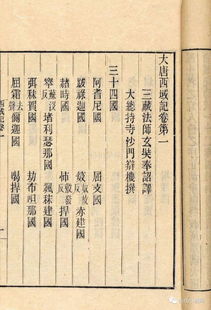 大唐西域記卷第一
三藏法師玄奘奉詔譯
大總持寺沙門辯機撰
三十四國
阿耆尼國 屈支國
跋祿迦國 赤建國
赭時國 捍國
堵利瑟那國 颯秣建國
弭秣賀國 劫布呾那國
屈霜 去聲 你迦國 喝捍國